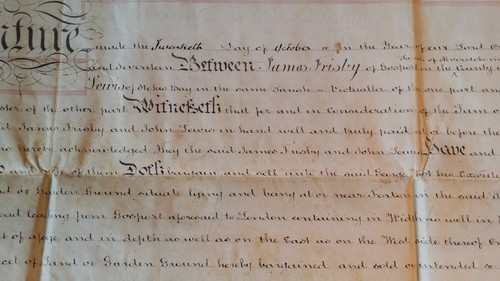 nture made the Twentieth Day of October in the Year of our Lord
and Seventeen Between James Frisby of Gosport in the County
Lewis of Stokes Bay in the same Parish Victualler of the one part and
ster of the other part Witnesseth that for and in Consideration of the Sum
James Frisby and John Lewis in hand well and truly paid at or before the
hereby acknowledged They the said James Frisby and John Lewis Have and
and each of them Doth bargain and sell unto the said George his Executo
or Garden Ground situate lying and being at or near Forton in the said
oad leading from Gosport aforesaid to London containing in Width as well in
t of a foge and in depth as well as on the East as on the West side thereof
cel of Land or Garden Ground hereby bargained and sold or intended so